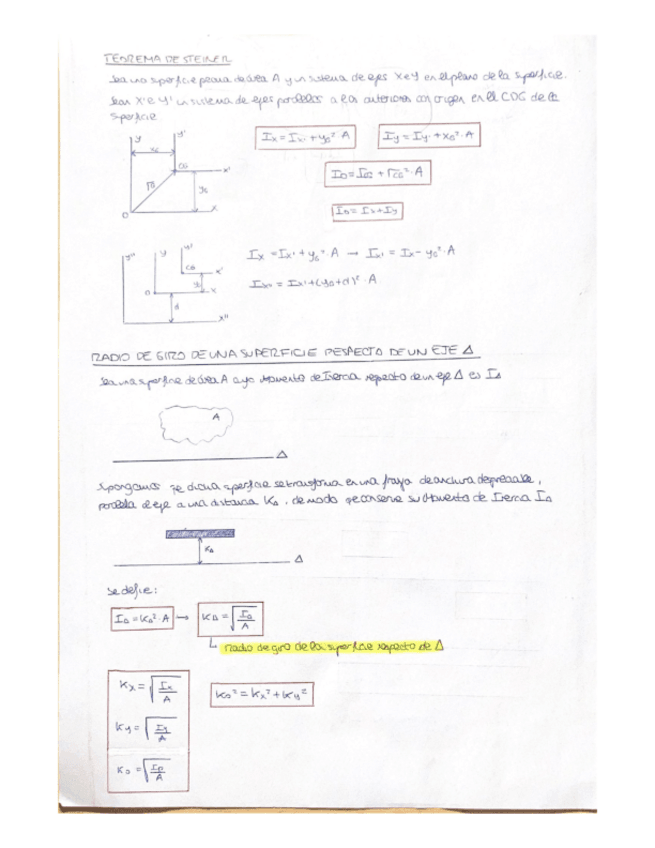 TEOREMA DE STEINER
Sea una superficie plana de área A y un sistema de ejes X e Y en el plano de la superficie.
Sean X' e Y' un sistema de ejes paralelos a los anteriores con origen en el CDG de la
superficie
y y'
x_G
CG x'
r_G y_G
O x
I_x = I_x' + y_G² · A I_y = I_y' + x_G² · A
I_O = I_CG + r_CG² · A
I_O = I_x + I_y
y'' y y'
CG x'
y_G
O x
d
x''
I_x = I_x' + y_G² · A → I_x' = I_x - y_G² · A
I_x'' = I_x' + (y_G + d)² · A
RADIO DE GIRO DE UNA SUPERFICIE RESPECTO DE UN EJE Δ
Sea una superficie de área A cuyo Momento de Inercia respecto de un eje Δ es I_Δ
A
Δ
Supongamos que dicha superficie se transforma en una franja de anchura despreciable,
paralela al eje a una distancia K_Δ, de modo que conserve su Momento de Inercia I_Δ
K_Δ
Δ
Se define:
I_Δ = K_Δ² · A → K_Δ = √(I_Δ/A)
↳ Radio de giro de la superficie respecto de Δ
K_x = √(I_x/A)
K_O² = K_x² + K_y²
K_y = √(I_y/A)
K_O = √(I_O/A)